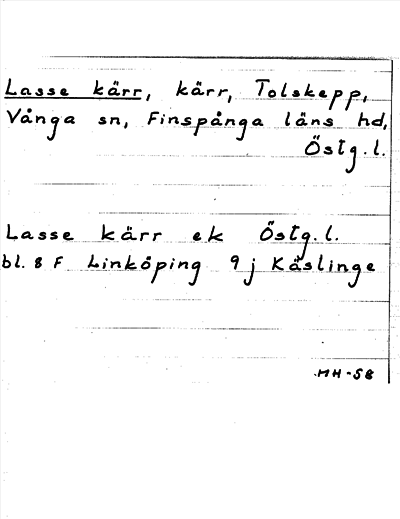 Lasse kärr, kärr, Tolskepp,
Vånga sn, Finspånga läns hd,
Östg. l.
Lasse kärr ek Östg. l.
bl. 8 F Linköping 9 j Käslinge
MH-58